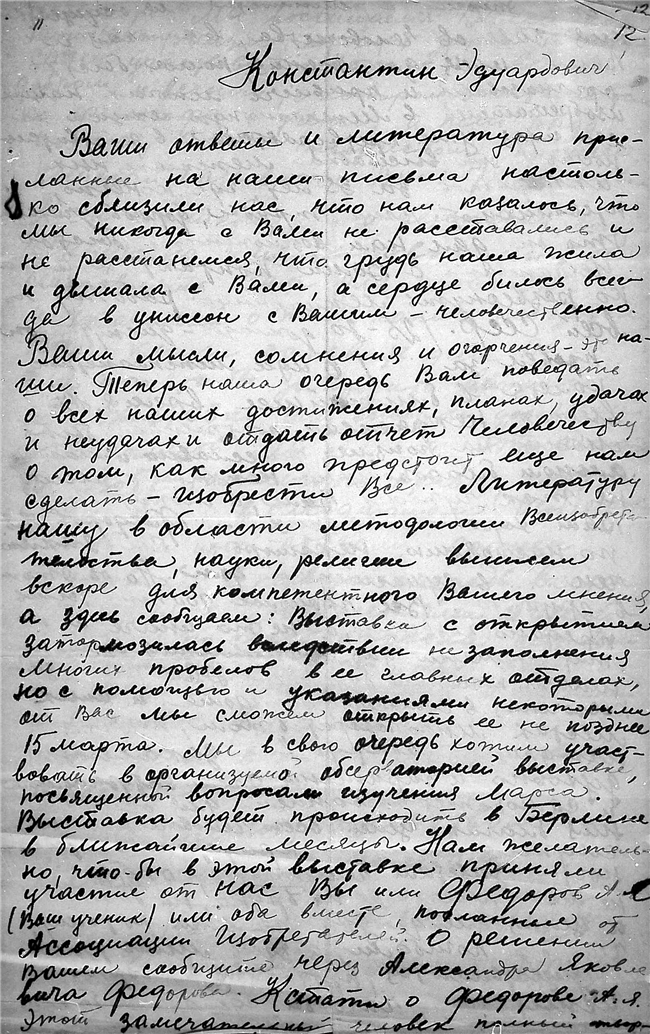 12
"
12
Константин Эдуардович!
Ваши ответы и литература прис-
ланные на наши письма настоль-
ко сблизили нас, что нам казалось, что
мы никогда с Вами не расставались и
не расстанемся, что грудь наша жила
и дышала с Вами, а сердце билось всег-
да в униссон с Вашим - человечественно.
Ваши мысли, сомнения и огорчения - это на-
ши. Теперь наша очередь Вам поведать
о всех наших достижениях, планах, удачах
и неудачах и отдать отчет Человечеству
о том, как много предстоит еще нам
сделать - изобрести Все.. Литературу
нашу в области методологии Всеизобрета-
тельства, науки, религии вышлем
вскоре для компетентного Вашего мнения,
а здесь сообщаем: Выставка с открытием
затормозилась вследствии незаполнения
многих пробелов в ее главных отделах,
но с помощью и указаниями некоторыми
от Вас мы сможем открыть ее не позднее
15 марта. Мы в свою очередь хотим участ-
вовать в организуемой обсерваторией выставке,
посвященной вопросам изучения Марса.
Выставка будет происходить в Берлине
в ближайшие месяцы. Нам желатель-
но, что-бы в этой выставке приняли
участие от нас Вы или Федоров А.Я
(Ваш ученик) или оба вместе, посланные от
Ассоциации Изобретателей. О решении
Вашем сообщите через Александра Яковле
вича Федорова. Кстати о Федорове А.Я.
Этот замечательный человек полный